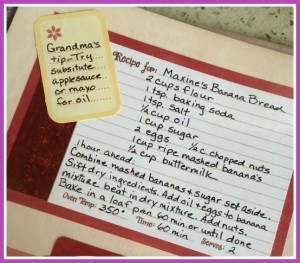 Grandma's
tip~Try
subsitute
applesauce
or mayo
for oil
Recipe for: Maxine's Banana Bread
2 cups flour
1 tsp. baking soda
1 tsp. salt
¼ cup oil
1 cup sugar
2 eggs ½ c. chopped nuts
1 cup ripe mashed banana's
¼ cup buttermilk
1 hour ahead:
Combine mashed bananas & sugar set aside.
Sift dry ingredients. Add oil & eggs to banana
mixture beat in dry mixture. Add nuts.
Bake in a loaf pan 60 min. or until done
Oven Temp: 350° Time: 60 min Serves: 2